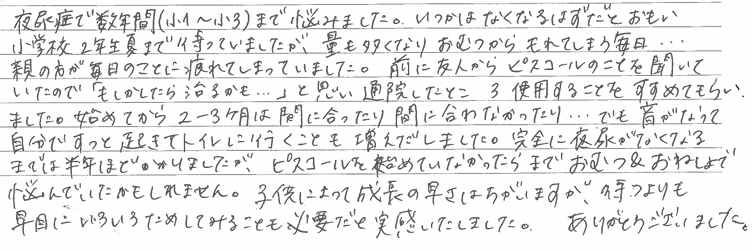 夜尿症で数年間(小1~小3)まで悩みました。いつかはなくなるはずだとおもい
小学校2年生夏まで待っていましたが、量も多くなりおむつからもれてしまう毎日…
親の方が毎日のことに疲れてしまっていました。前に友人からピスコールのことを聞いて
いたので「もしかしたら治るかも…」と思い通院したところ使用することをすすめてもらい
ました。始めてから2-3ヶ月は間に合ったり間に合わなかったり…でも音がなって
自分ですっと起きてトイレに行くことも増えだしました。完全に夜尿がなくなる
までは半年ほどかかりましたが、ピスコールを始めていなかったらまだおむつ&おねしょで
悩んでいたかもしれません。子供によって成長の早さはちがいますが、待つよりも
早目にいろいろためしてみることも必要だと実感いたしました。ありがとうございました。